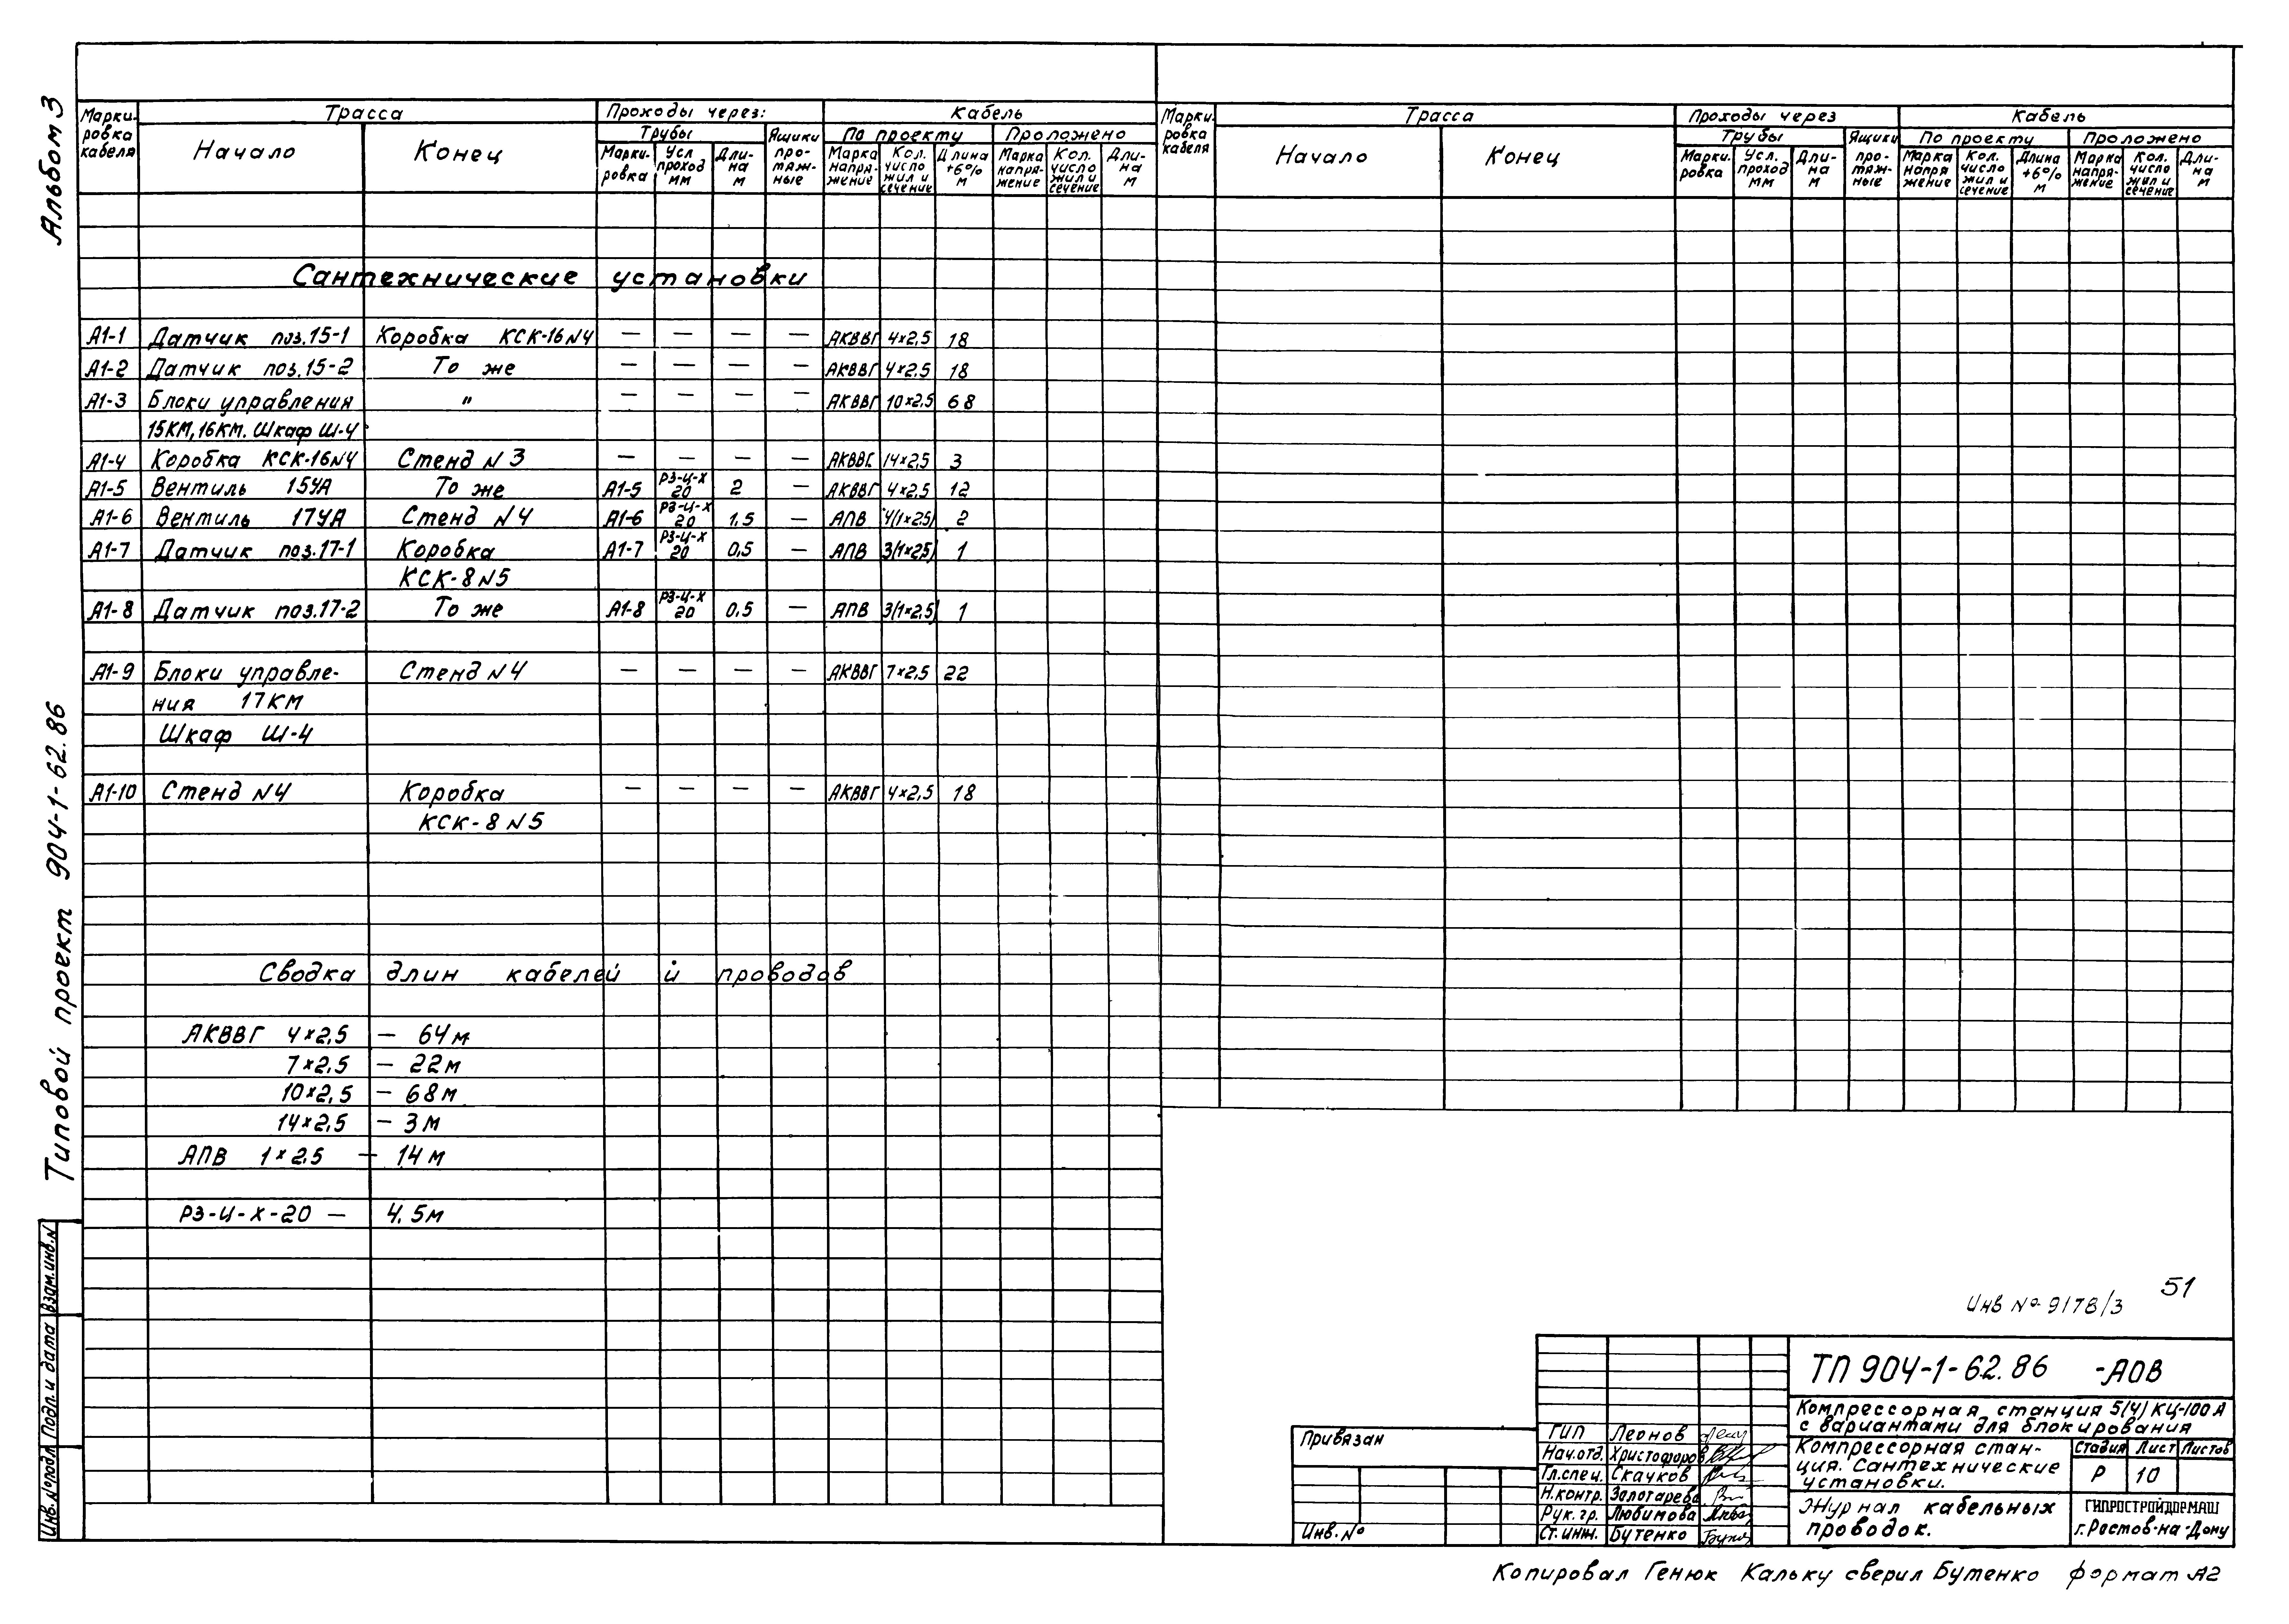 Альбом 3
Типовой проект 904-1-62.86
Взам.инв.N
Подп. и дата
Инв.Nоподл
Марки-ровка кабеля | Трасса | Проходы через: | Кабель
Начало | Конец | Трубы | Ящики про-тяж-ные | По проекту | Проложено
Марки-ровка | Усл проход мм | Дли-на м | Марка напря-жение | Кол. число жил и сечение | Длина +6% м | Марка напря-жение | Кол. число жил и сечение | Дли-на м
Марки-ровка кабеля | Трасса | Проходы через | Кабель
Начало | Конец | Трубы | Ящики про-тяж-ные | По проекту | Проложено
Марки-ровка | Усл. проход мм | Дли-на м | Марка напря жение | Кол. число жил и сечение | Длина +6% м | Марка напря-жение | Кол. число жил и сечение | Дли-на м
Сантехнические установки
А1-1 Датчик поз.15-1 Коробка КСК-16N4 — — — — АКВВГ 4×2,5 18
А1-2 Датчик поз.15-2 То же — — — — АКВВГ 4×2,5 18
А1-3 Блоки управления " — — — — АКВВГ 10×2,5 68
15КМ,16КМ. Шкаф Ш-4
А1-4 Коробка КСК-16N4 Стенд N3 — — — — АКВВГ 14×2,5 3
А1-5 Вентиль 15УА То же А1-5 РЗ-Ц-Х 20 2 — АКВВГ 4×2,5 12
А1-6 Вентиль 17УА Стенд N4 А1-6 РЗ-Ц-Х 20 1,5 — АПВ 4(1×2,5) 2
А1-7 Датчик поз.17-1 Коробка А1-7 РЗ-Ц-Х 20 0,5 — АПВ 3(1×2,5) 1
КСК-8N5
А1-8 Датчик поз.17-2 То же А1-8 РЗ-Ц-Х 20 0,5 — АПВ 3(1×2,5) 1
А1-9 Блоки управле- Стенд N4 — — — — АКВВГ 7×2,5 22
ния 17КМ
Шкаф Ш-4
А1-10 Стенд N4 Коробка — — — — АКВВГ 4×2,5 18
КСК-8N5
Сводка длин кабелей и проводов
АКВВГ 4×2,5 — 64м
7×2,5 — 22м
10×2,5 — 68м
14×2,5 — 3м
АПВ 1×2.5 — 14м
РЗ-Ц-Х-20 — 4.5м
51
Инв № 9178/3
ТП 904-1-62.86 -АОВ
Компрессорная станция 5(4)КЦ-100А
с вариантами для блокирования
Компрессорная стан-
ция. Сантехнические
установки.
Стадия Лист Листов
Р 10
Журнал кабельных
проводок.
ГИПРОСТРОЙДОРМАШ
г.Ростов-на-Дону
Привязан
Инв.№
ГИП Леонов
Нач.отд. Христофоров
Гл.спец. Скачков
Н.контр. Золотарева
Рук.гр. Любимова
Ст.инж. Бутенко
Копировал Генюк Кальку сверил Бутенко формат А2